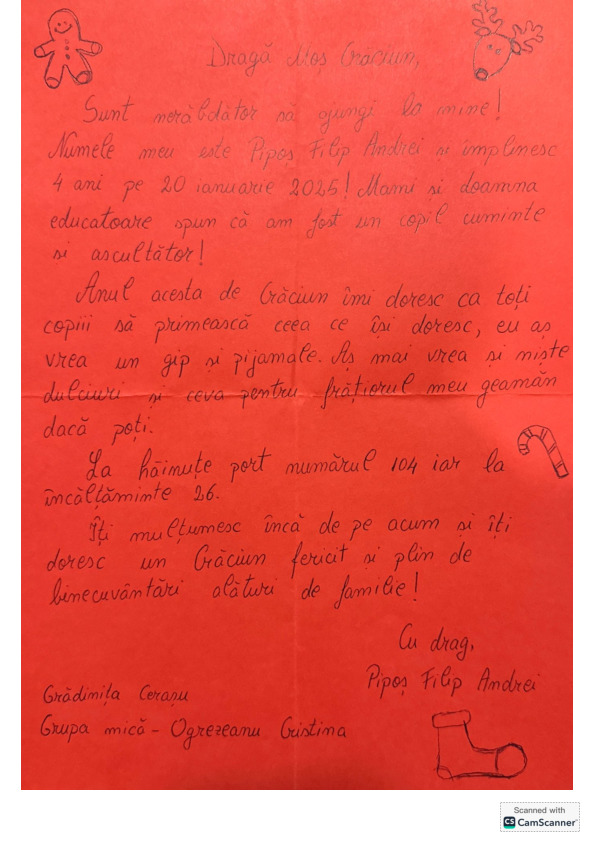 Dragă Moș Crăciun,
Sunt nerăbdător să ajungi la mine!
Numele meu este Pipoș Filip Andrei si împlinesc
4 ani pe 20 ianuarie 2025! Mami și doamna
educatoare spun că am fost un copil cuminte
si ascultător!
Anul acesta de Crăciun îmi doresc ca toți
copiii să primească ceea ce își doresc, eu aș
vrea un gip si pijamale. Aș mai vrea si niște
dulciuri și ceva pentru frățiorul meu geamăn
dacă poți.
La hăinuțe port numărul 104 iar la
încălțăminte 26.
Îți mulțumesc încă de pe acum si îți
doresc un Crăciun fericit si plin de
binecuvântări alături de familie!
Cu drag,
Pipoș Filip Andrei
Grădinița Cerașu
Grupa mică - Ogrezeanu Cristina
Scanned with
CS CamScanner